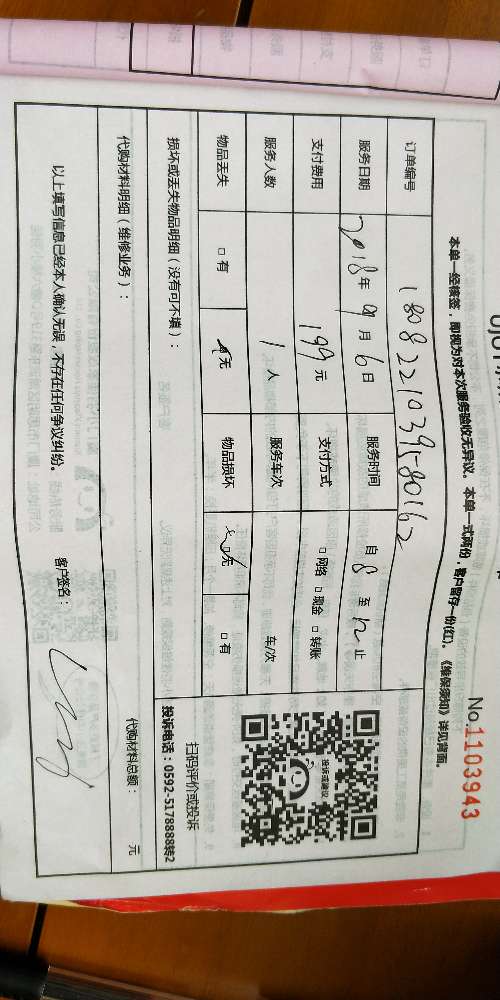 No.1103943
本单一经核签，即视为对本次服务验收无异议。本单一式两份，客户留存一份(红)。《维保须知》详见背面。
订单编号 1808221039580162
服务日期 2018年9月6日 服务时间 自8至12止
支付费用 199元 支付方式 □网络 □现金 □转账
服务人数 1人 服务车次 车/次
物品丢失 □有 □无 物品损坏 □无 □有
投诉或建议
扫码评价或投诉
投诉电话：0592-5178888转2
损坏或丢失物品明细（没有可不填）：
代购材料明细（维修业务）： 代购材料总额： 元
以上填写信息已经本人确认无误，不存在任何争议纠纷。 客户签名：